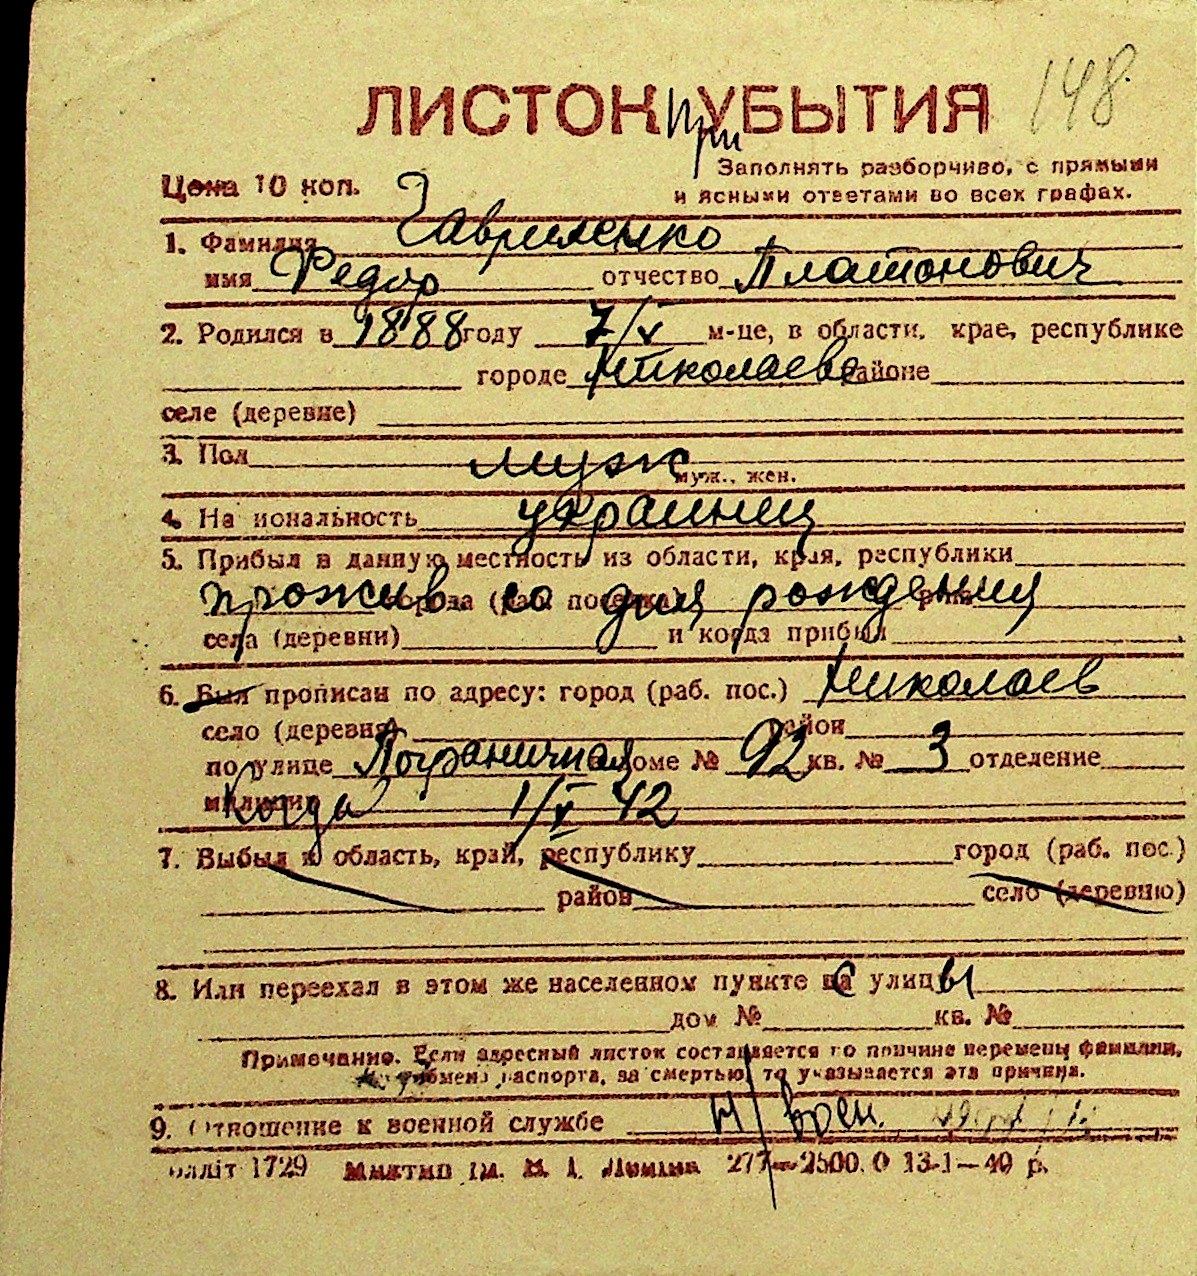 148.
ЛИСТОК при УБЫТИЯ
Заполнять разборчиво, с прямыми
Цена 10 коп.
и ясными ответами во всех графах.
1. Фамилия Гавриленко
имя Федор отчество Платонович
2. Родился в 1888 году 7/V м-це, в области, крае, республике
городе Николаеве районе
селе (деревне)
3. Пол муж
муж., жен.
4. На иональность украинец
5. Прибыл в данную местность из области, края, республики
прожив. со дня рождения
города (раб. поселка) р-на
села (деревни) и когда прибыл
6. Был прописан по адресу: город (раб. пос.) Николаев
село (деревня) район
по улице Пограничная в доме № 92 кв. № 3 отделение
милиции Когда 1/V 42
7. Выбыл в область, край, республику город (раб. пос.)
район село (деревню)
8. Или переехал в этом же населенном пункте на с улицы
дом № кв. №
Примечание. Если адресный листок составляется по причине перемены фамилии,
обмена паспорта, за смертью, то указывается эта причина.
9. Отношение к военной службе н/воен.
1729 Миктип ім. В. І. Леніна 277—2500. 0 13-1—40 р.